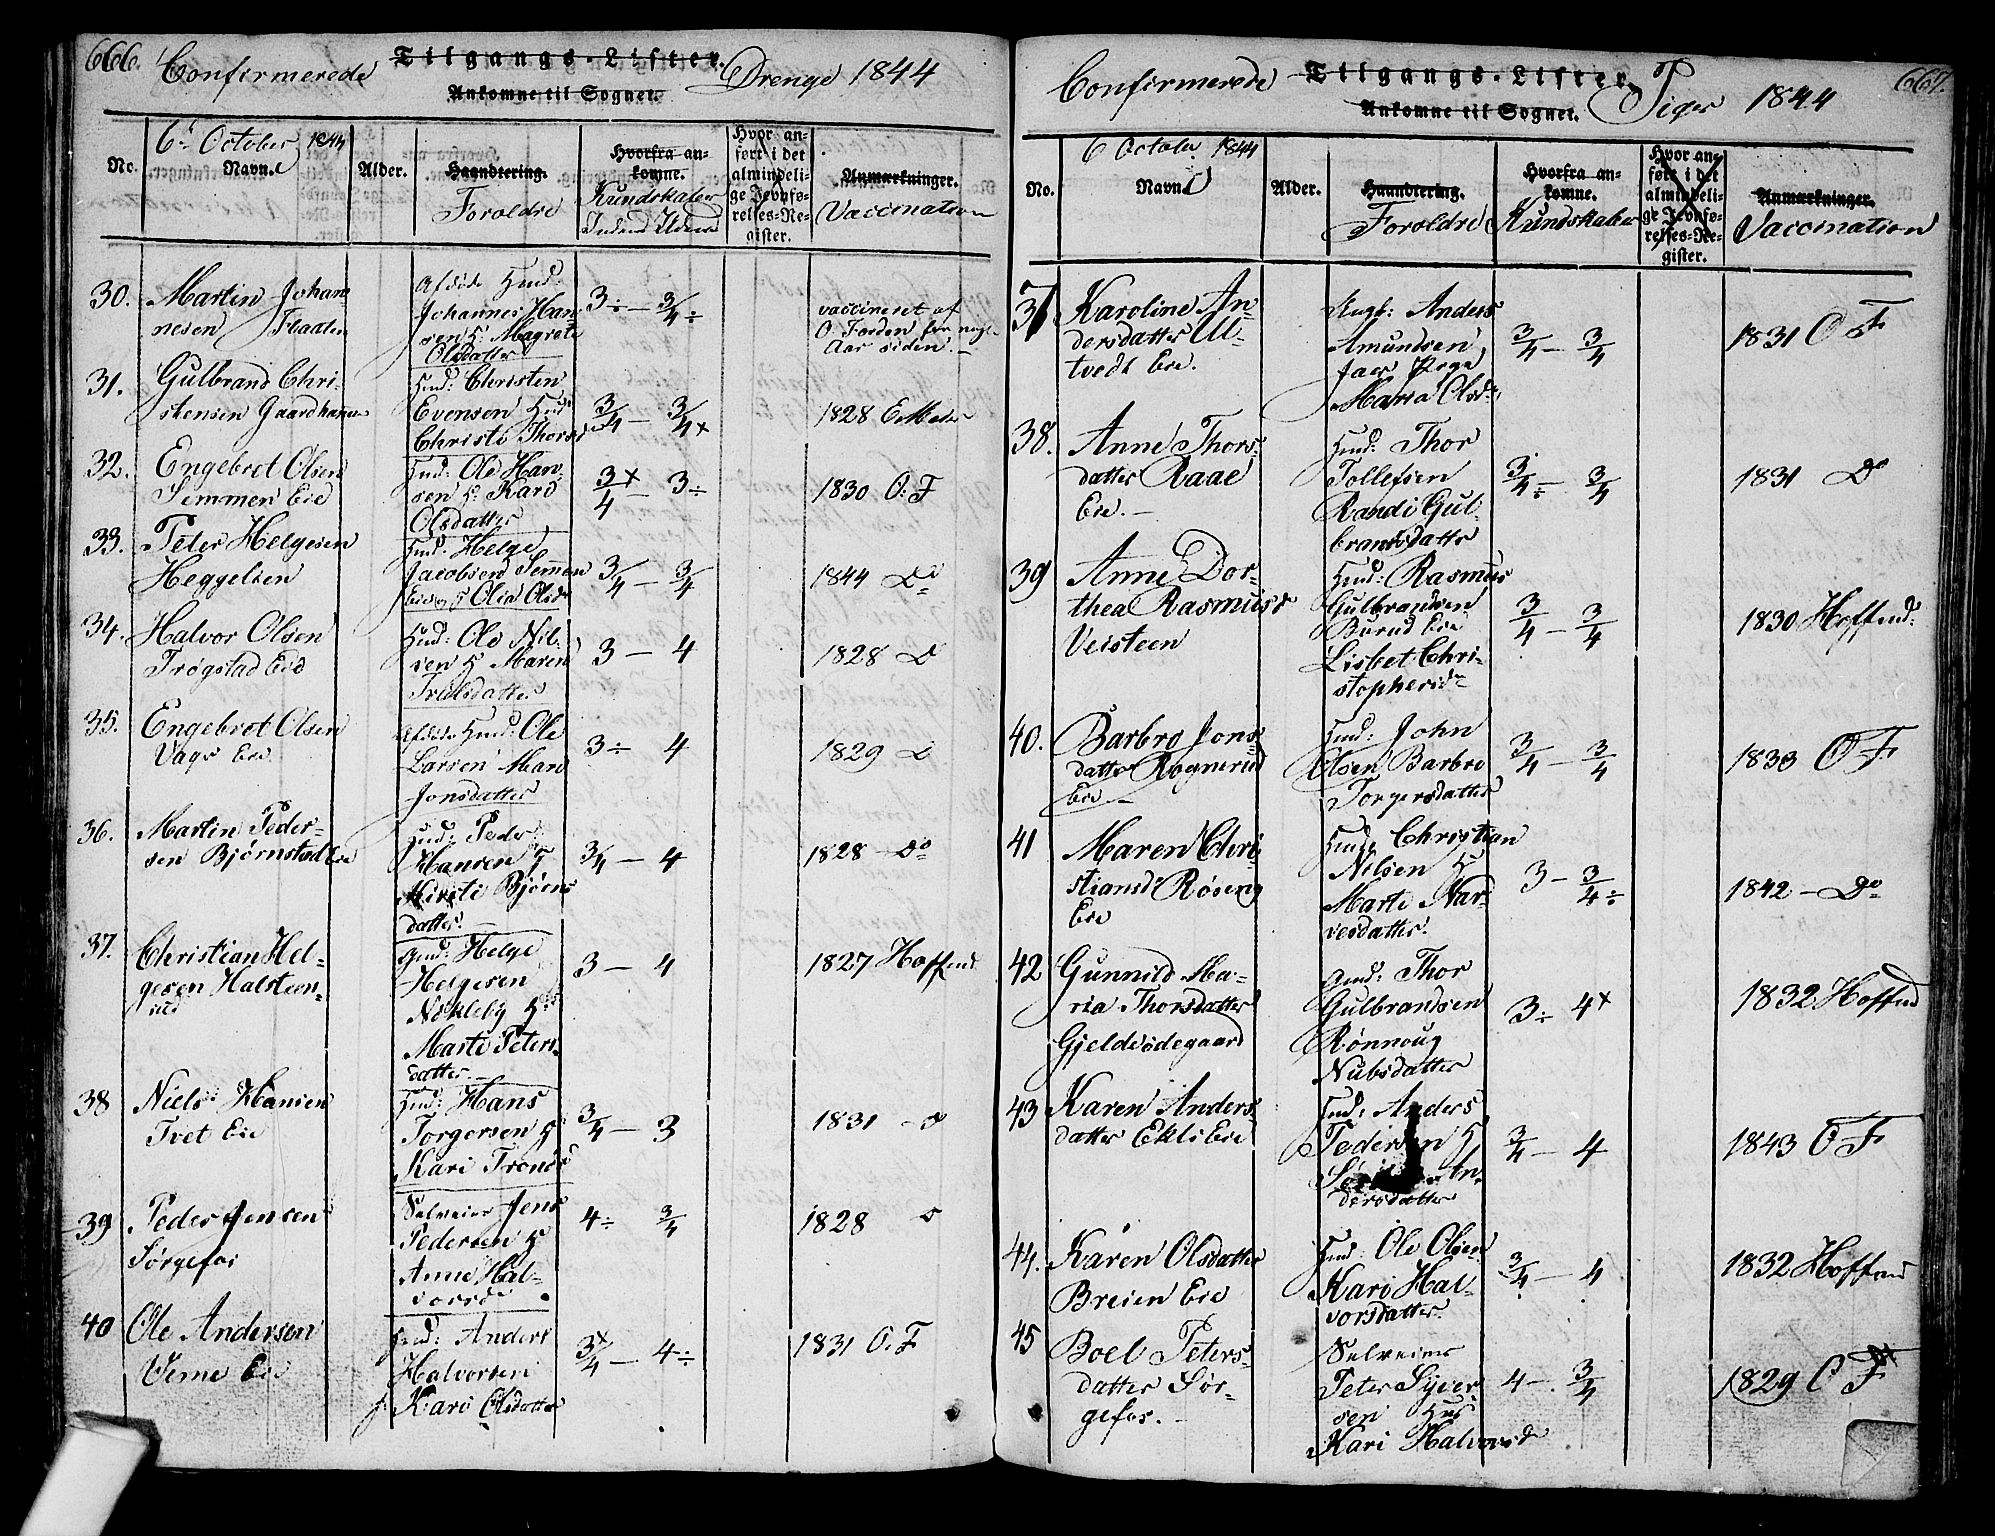 666.
Confirmerede Tilgangs-Lister. Drenge 1844
Ankomne til Sognet.
6te October 1844
No. Navn. Alder. Haandtering. Hvorfra ankomne. Hvor anført i det almindelige Jevnførelses-Register. Anmærkninger.
Foroldre Kundskaber Vaccination
30. Martin Johannesen Flaaden
Johannes Hansen H. Magrete
Olsdatter
3÷ — 3/4÷
vaccineret af
O. Forden for nogle
Aar siden.
31. Gulbrand Christensen Gaardhammer
Huud: Christen
Evensen Hus
Christi Thorsd
3/4 — 3/4x
1828
32. Engebret Olsen
Semmen Eie
Huud: Ole Hansen H. Kari
Olsdatter
3/4x — 3÷
1830 O. F
33. Peter Helgesen
Heggelien
Huud: Helge
Jacobsen Semmen
Eie og H Olia Olsd
3/4 — 3/4
1844 Do
34. Halvor Olsen
Trøgstad Eie
Huud: Ole Nilsen H Maren
Trulsdatter
3 — 4
1828 D
35. Engebret Olsen
Vager Eie
Huud: Ole
Larsen Mari
Jonsdatter
3÷ — 4
1829 D
36. Martin Pedersen Bjørnstad Eie
Huud: Peder
Hansen H
Kirsti Bjørnsdatter.
3/4 — 4
1828 Do
37. Christian Helgesen Halsteenrud
Huud: Helge
Helgesen
Nøkleby Hs
Marte Petersdatter.
3 — 4
1827 Hoffend
38 Niels Hansen
Tvet Eie
Huud: Hans
Torgersen H
Kari Tronsd
3/4 — 3
1831 - o
39 Peder Jensen
Sørgefos
Selveier Jens
Pedersen H
Anne Halvorsd
4÷ 3/4
1828 o
40 Ole Andersen
Verne Eie
Huud: Anders
Halvorsen
Kari Olsdatter
3/4x — 4÷
1831 O. F
667.
Confirmerede Tilgangs-Lister. Piger 1844
Ankomne til Sognet.
6 October 1844
No. Navn. Alder. Haandtering. Hvorfra ankomne. Hvor anført i det almindelige Jevnførelses-Register. Anmærkninger.
Foroldre Kundskaber Vaccination
37 Karoline Andersdatter Altvedt Eie.
Ungk: Anders
Amundsen
Maria Olsd
3/4 — 3/4
1831 O F
38. Anne Thorsdatter Raae
Eie.
Huud: Thor
Tollefsen
Randi Gulbrandsdatter
3/4÷ 3/4
1831 Do
39 Anne Dorthea Rasmusd
Veisteen
Huud: Rasmus
Gulbrandsen
Burud Eie
Lisbet Christophersd
3/4 — 3/4
1830 Hoffend:
40. Barbro Jonsdatter Rognerud
Eie
Huud: John
Olsen Barbro
Torgersdatter
3/4 — 3/4
1833 O F
41 Maren Christiansd Røseng
Eie
Huud: Christian
Nilsen H
Marte Narvesdatter
3 — 3/4÷
1842 — Do
42 Gunnild Maria Thorsdatter
Gjeldeødegaard
Huud: Thor
Gulbrandsen
Rønnoug
Nubsdatter
3÷ 4x
1832 Hoffend
43 Karen Andersdatter Ekli Eie
Huud: Anders
Pedersen H
Andersdatter
3/4 — 4
1843 O F
44. Karen Olsdatter
Breien Eie
Huud: Ole Olsen
Kari Halvorsdatter.
3/4 — 4
1832 Hoffend
45 Boel Petersdatter Sørgefos.
Selveier
Peter Syversen Hus
Kari Halvorsd
4 — 3/4
1829 O F